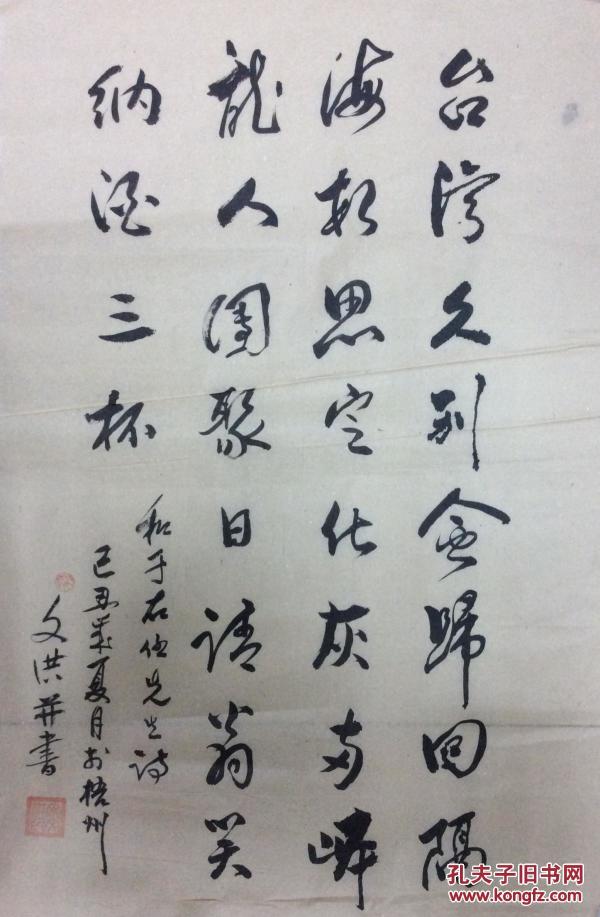 台湾久别会歸回隔
海相思定化灰两岸
龍人團聚日請翁笑
纳酒三杯
和于右任先生诗
己丑岁夏月於梧州
文洪并書
孔夫子旧书网
www.kongfz.com